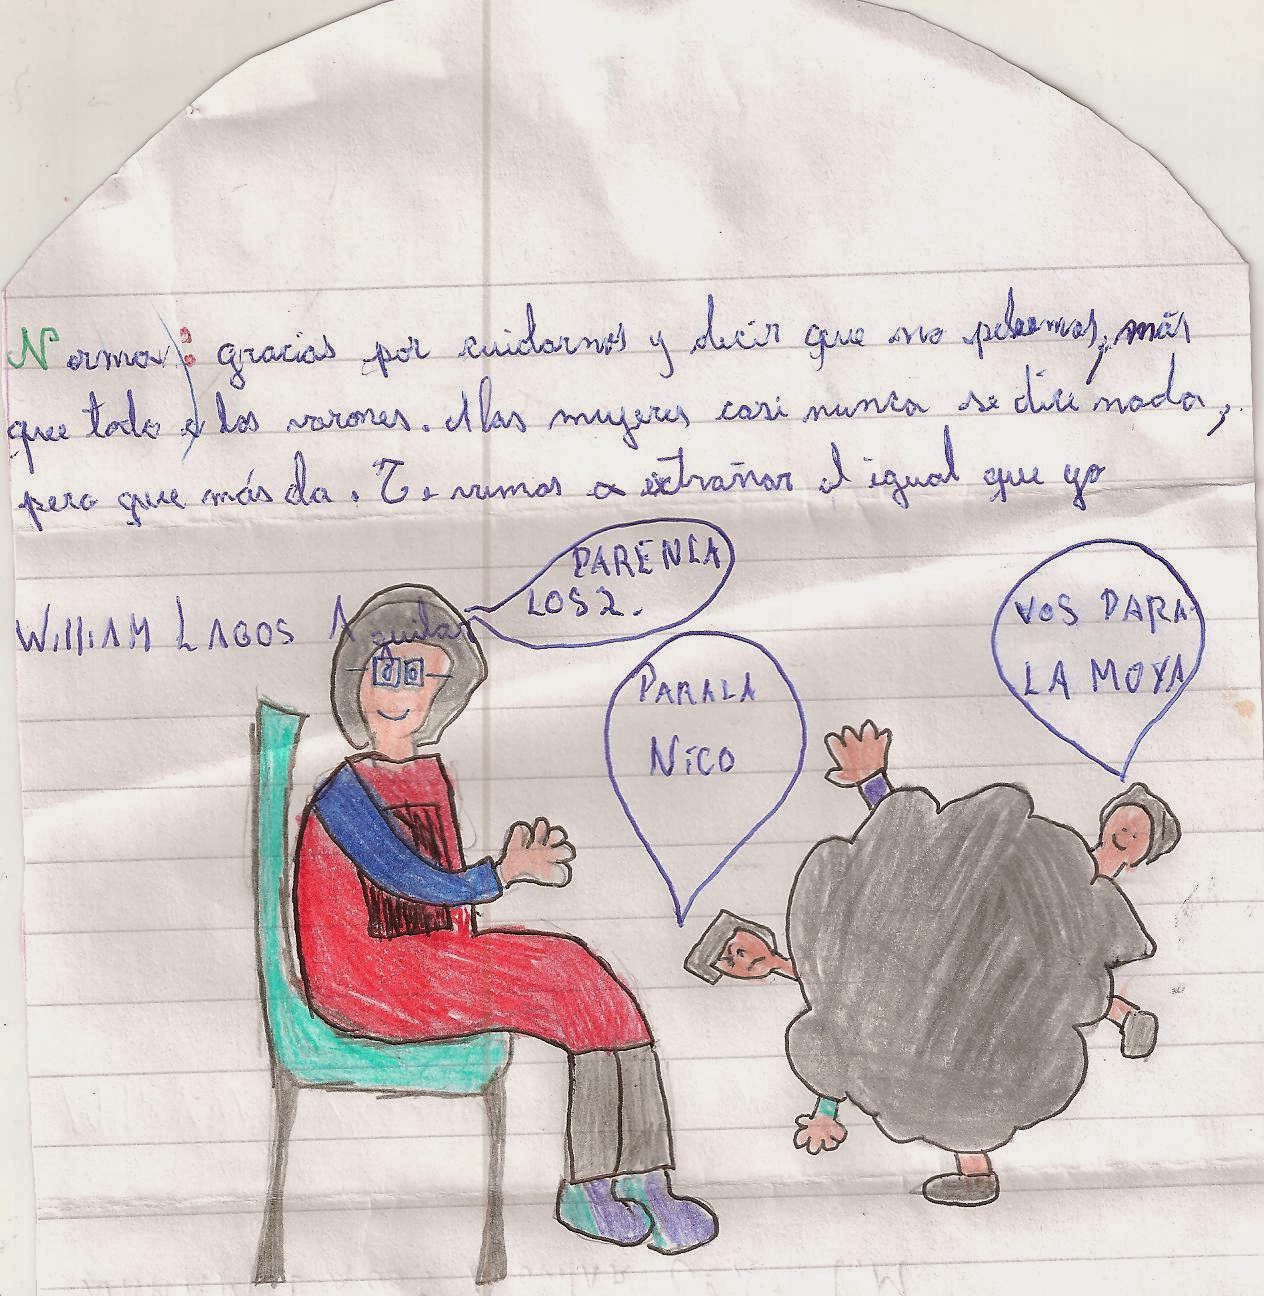 Norma: gracias por cuidarnos y decir que no peleemos, más
que todo a los varones. A las mujeres casi nunca se dice nada,
pero que más da. Te vemos a extrañar el igual que yo
WilliAM LAGOS Aguilar
PARENLA
LOS 2.
PARALA
Nico
VOS PARA
LA MOYA